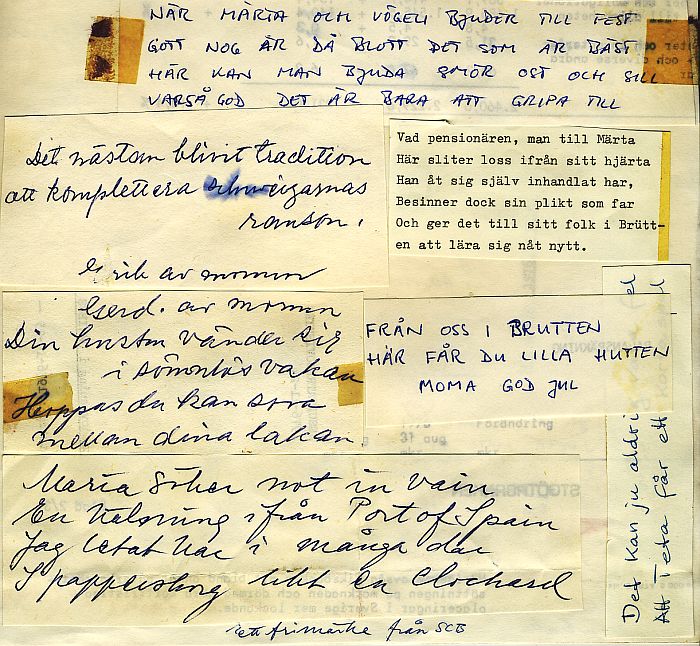 NÄR MÄRTA OCH VÖGELI BJUDER TILL FEST
GOTT NOG ÄR DÅ BLOTT DET SOM ÄR BÄST
HÄR KAN MAN BJUDA SMÖR OST OCH SILL
VARSÅGOD DET ÄR BARA ATT GRIPA TILL
Det nästan blivit tradition
att komplettera schweizarnas
ranson.
Erik av momun
Vad pensionären, man till Märta
Här sliter loss ifrån sitt hjärta
Han åt sig själv inhandlat har,
Besinner dock sin plikt som far
Och ger det till sitt folk i Brütt-
en att lära sig nåt nytt.
Gerd. av momun
Din hustru vänder sig
i sömnlös vakan
Hoppas du kan sova
mellan dina lakan
FRÅN OSS I BRUTTEN
HÄR FÅR DU LILLA HUTTEN
MOMA GOD JUL
Märta söker not in vain
En hälsning ifrån Port of Spain
Jag letat har i många dar
I papperskorg likt en Clochard
ett frimärke från SCB
Det kan ju aldrig
Att Teta får ett
31 aug